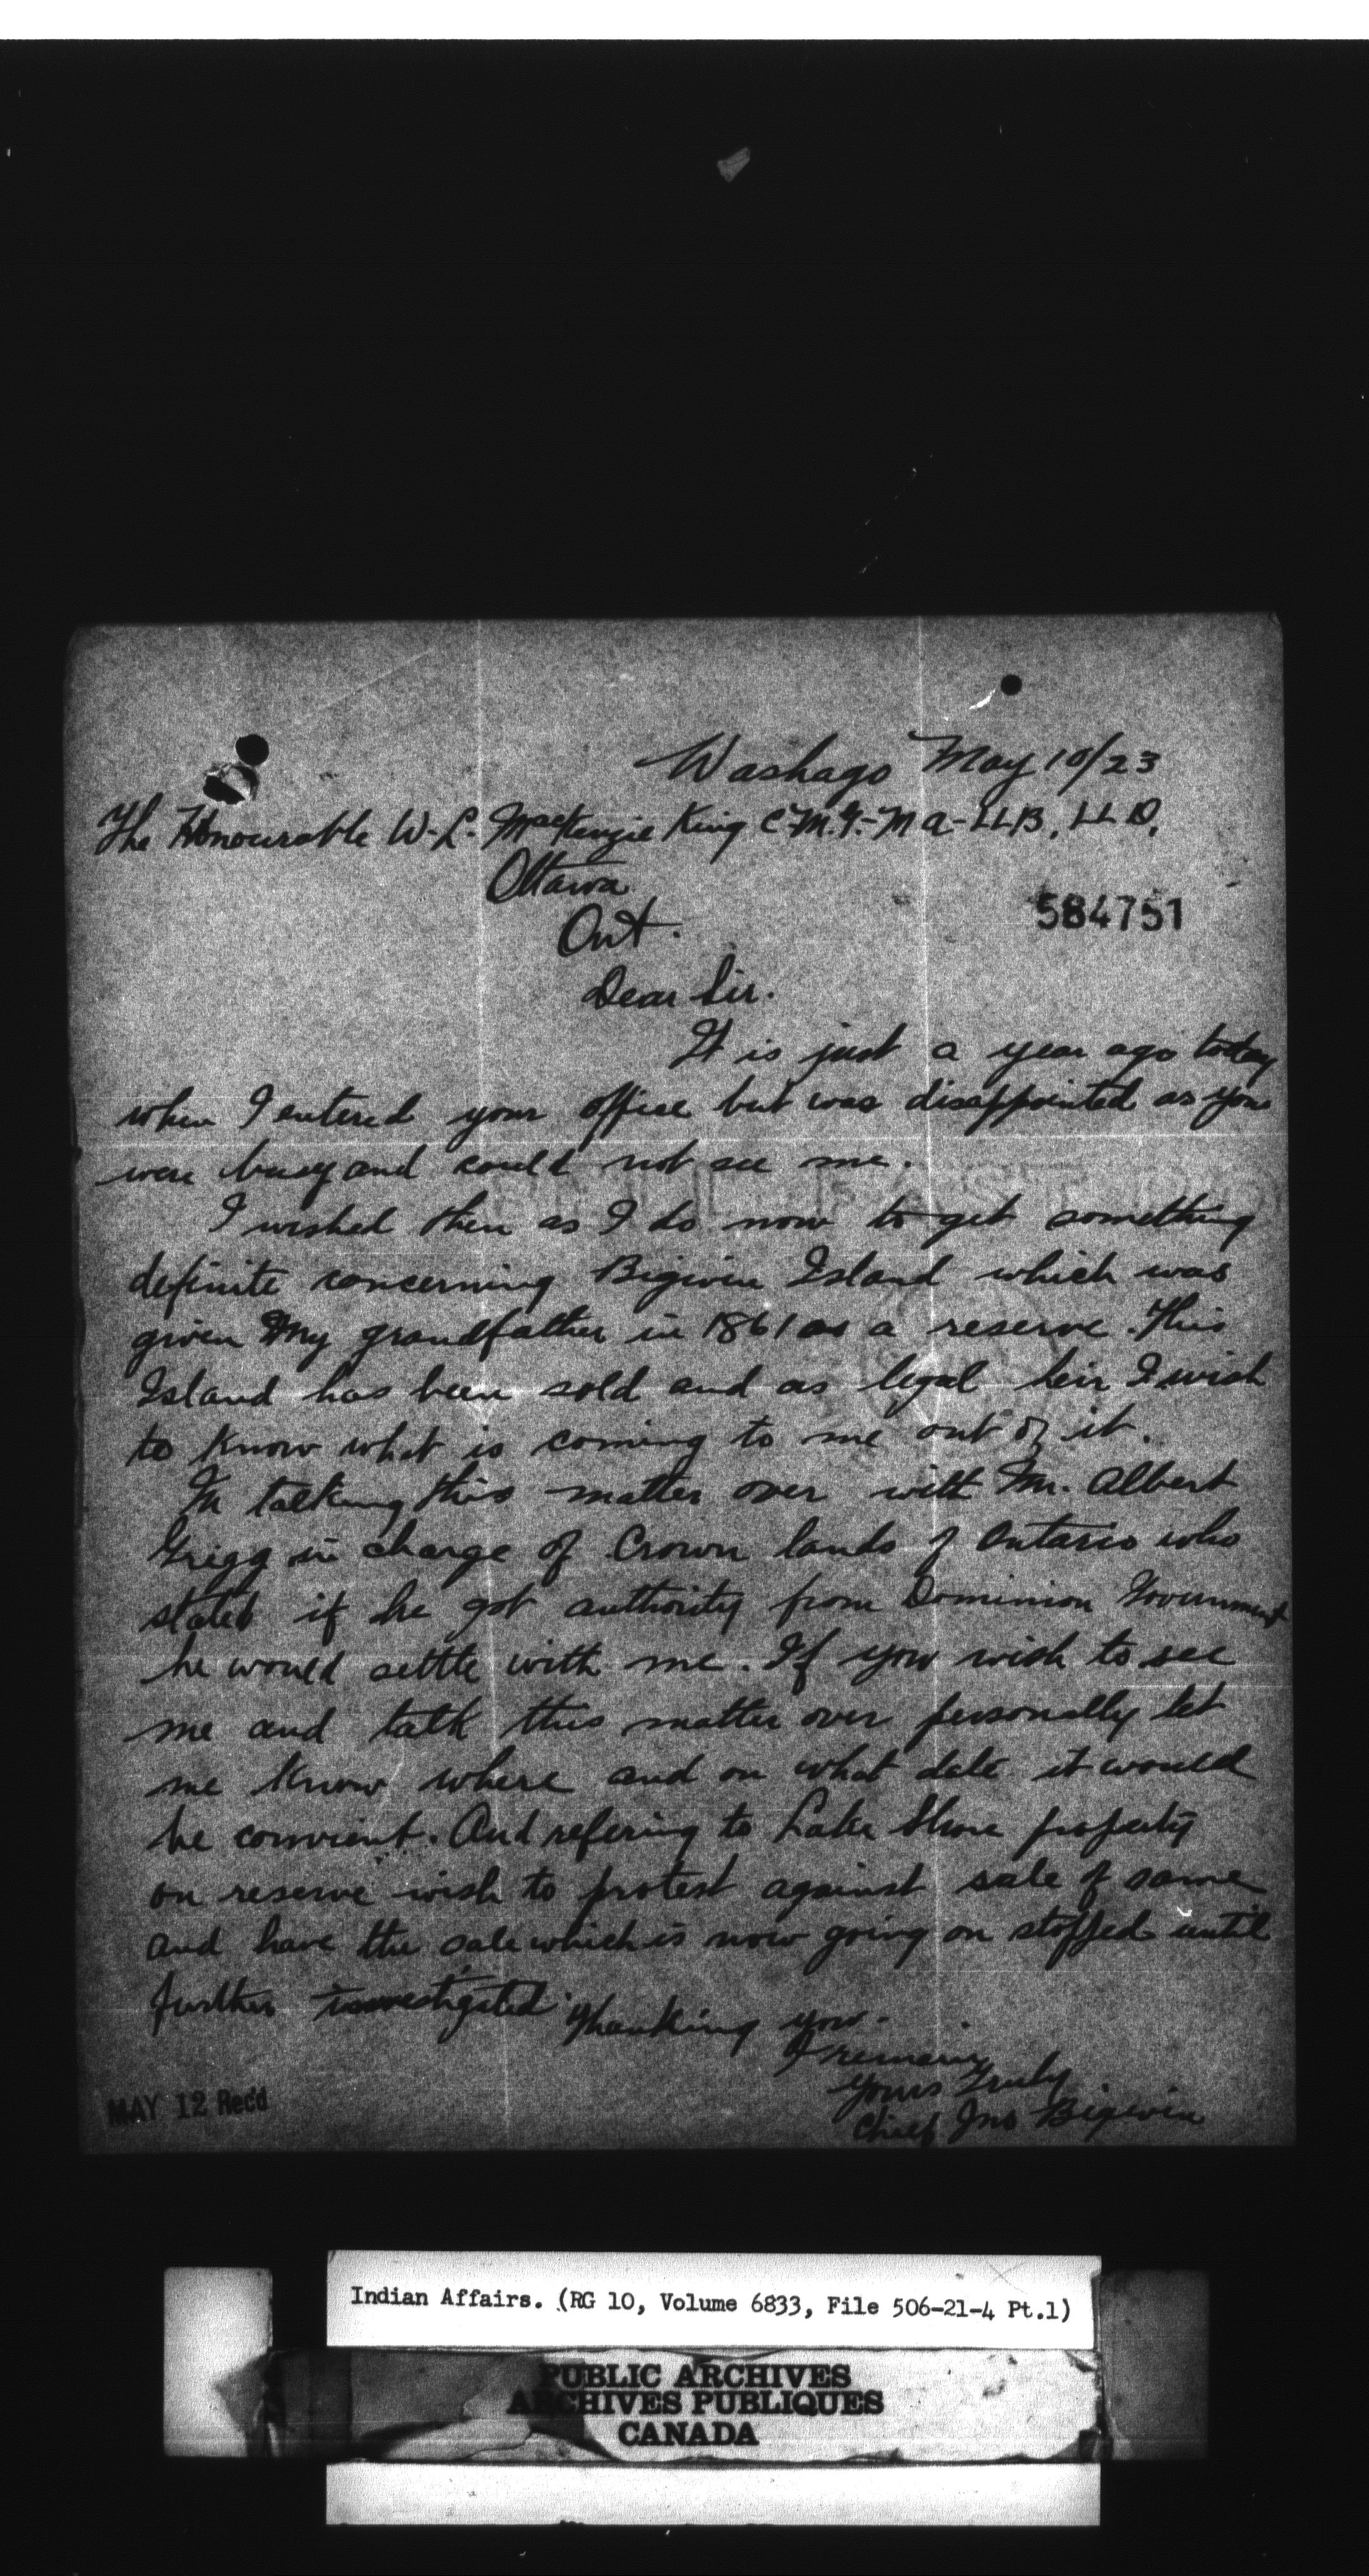 Washago May 10/23
The Honourable W. L. MacKenzie King C.M.G.-M a-LLB, LL D,
Ottawa
Ont.
584751
Dear Sir.
It is just a year ago today
when I entered your office but was disappointed as you
were busy and could not see me.
I wished then as I do now to get something
definite concerning Bigwin Island which was
given my grandfather in 1861 as a reserve. This
Island has been sold and as legal heir I wish
to know what is coming to me out of it.
In talking this matter over with Mr. Albert
Grigg in charge of Crown lands of Ontario who
stated if he got authority from Dominion Government
he would settle with me. If you wish to see
me and talk this matter over personally let
me know where and on what date it would
be convient. And refering to Lake Shore property
on reserve wish to protest against sale of same
and have the sale which is now going on stopped until
further investigated. Thanking you.
I remain
Yours Truly
Chief Jno Bigwin
MAY 12 Rec'd
Indian Affairs. (RG 10, Volume 6833, File 506-21-4 Pt.1)
PUBLIC ARCHIVES
ARCHIVES PUBLIQUES
CANADA